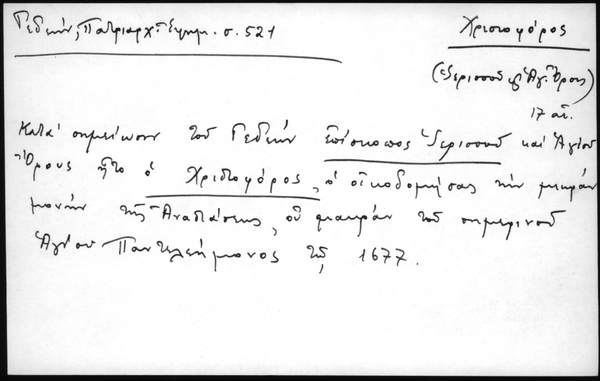 Γεδεών, Πατριαρχ. Εφημ. σ. 521
Χριστοφόρος
(Ιερισσού & Αγ. Όρους)
17 αι.
Κατά σημείωσιν του Γεδεών επίσκοπος Ιερισσού και Αγίου
Όρους ήτο ο Χριστοφόρος, ο οικοδομήσας την μικράν
μονήν της Αναστάσεως, ου μακράν του σημερινού
Αγίου Παντελεήμονος τω 1677.